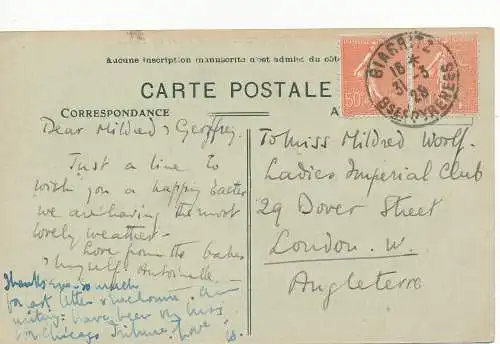 Aucune inscription manuscrite n'est admise du côté
CARTE POSTALE
CORRESPONDANCE
BIARRITZ
16 *
31 - 3
28
BSES PYRENEES
50c
Dear Mildred & Geoffrey.
Just a line to
wish you a happy Easter
we are having the most
lovely weather -
Love from the babes
& myself Antoinette
Thanks ever so much
for letter & enclosure.
have been
for Chicago Tribune. Love
To Miss Mildred Woolf
Ladies Imperial Club
29 Dover Street
London. W.
Angleterre